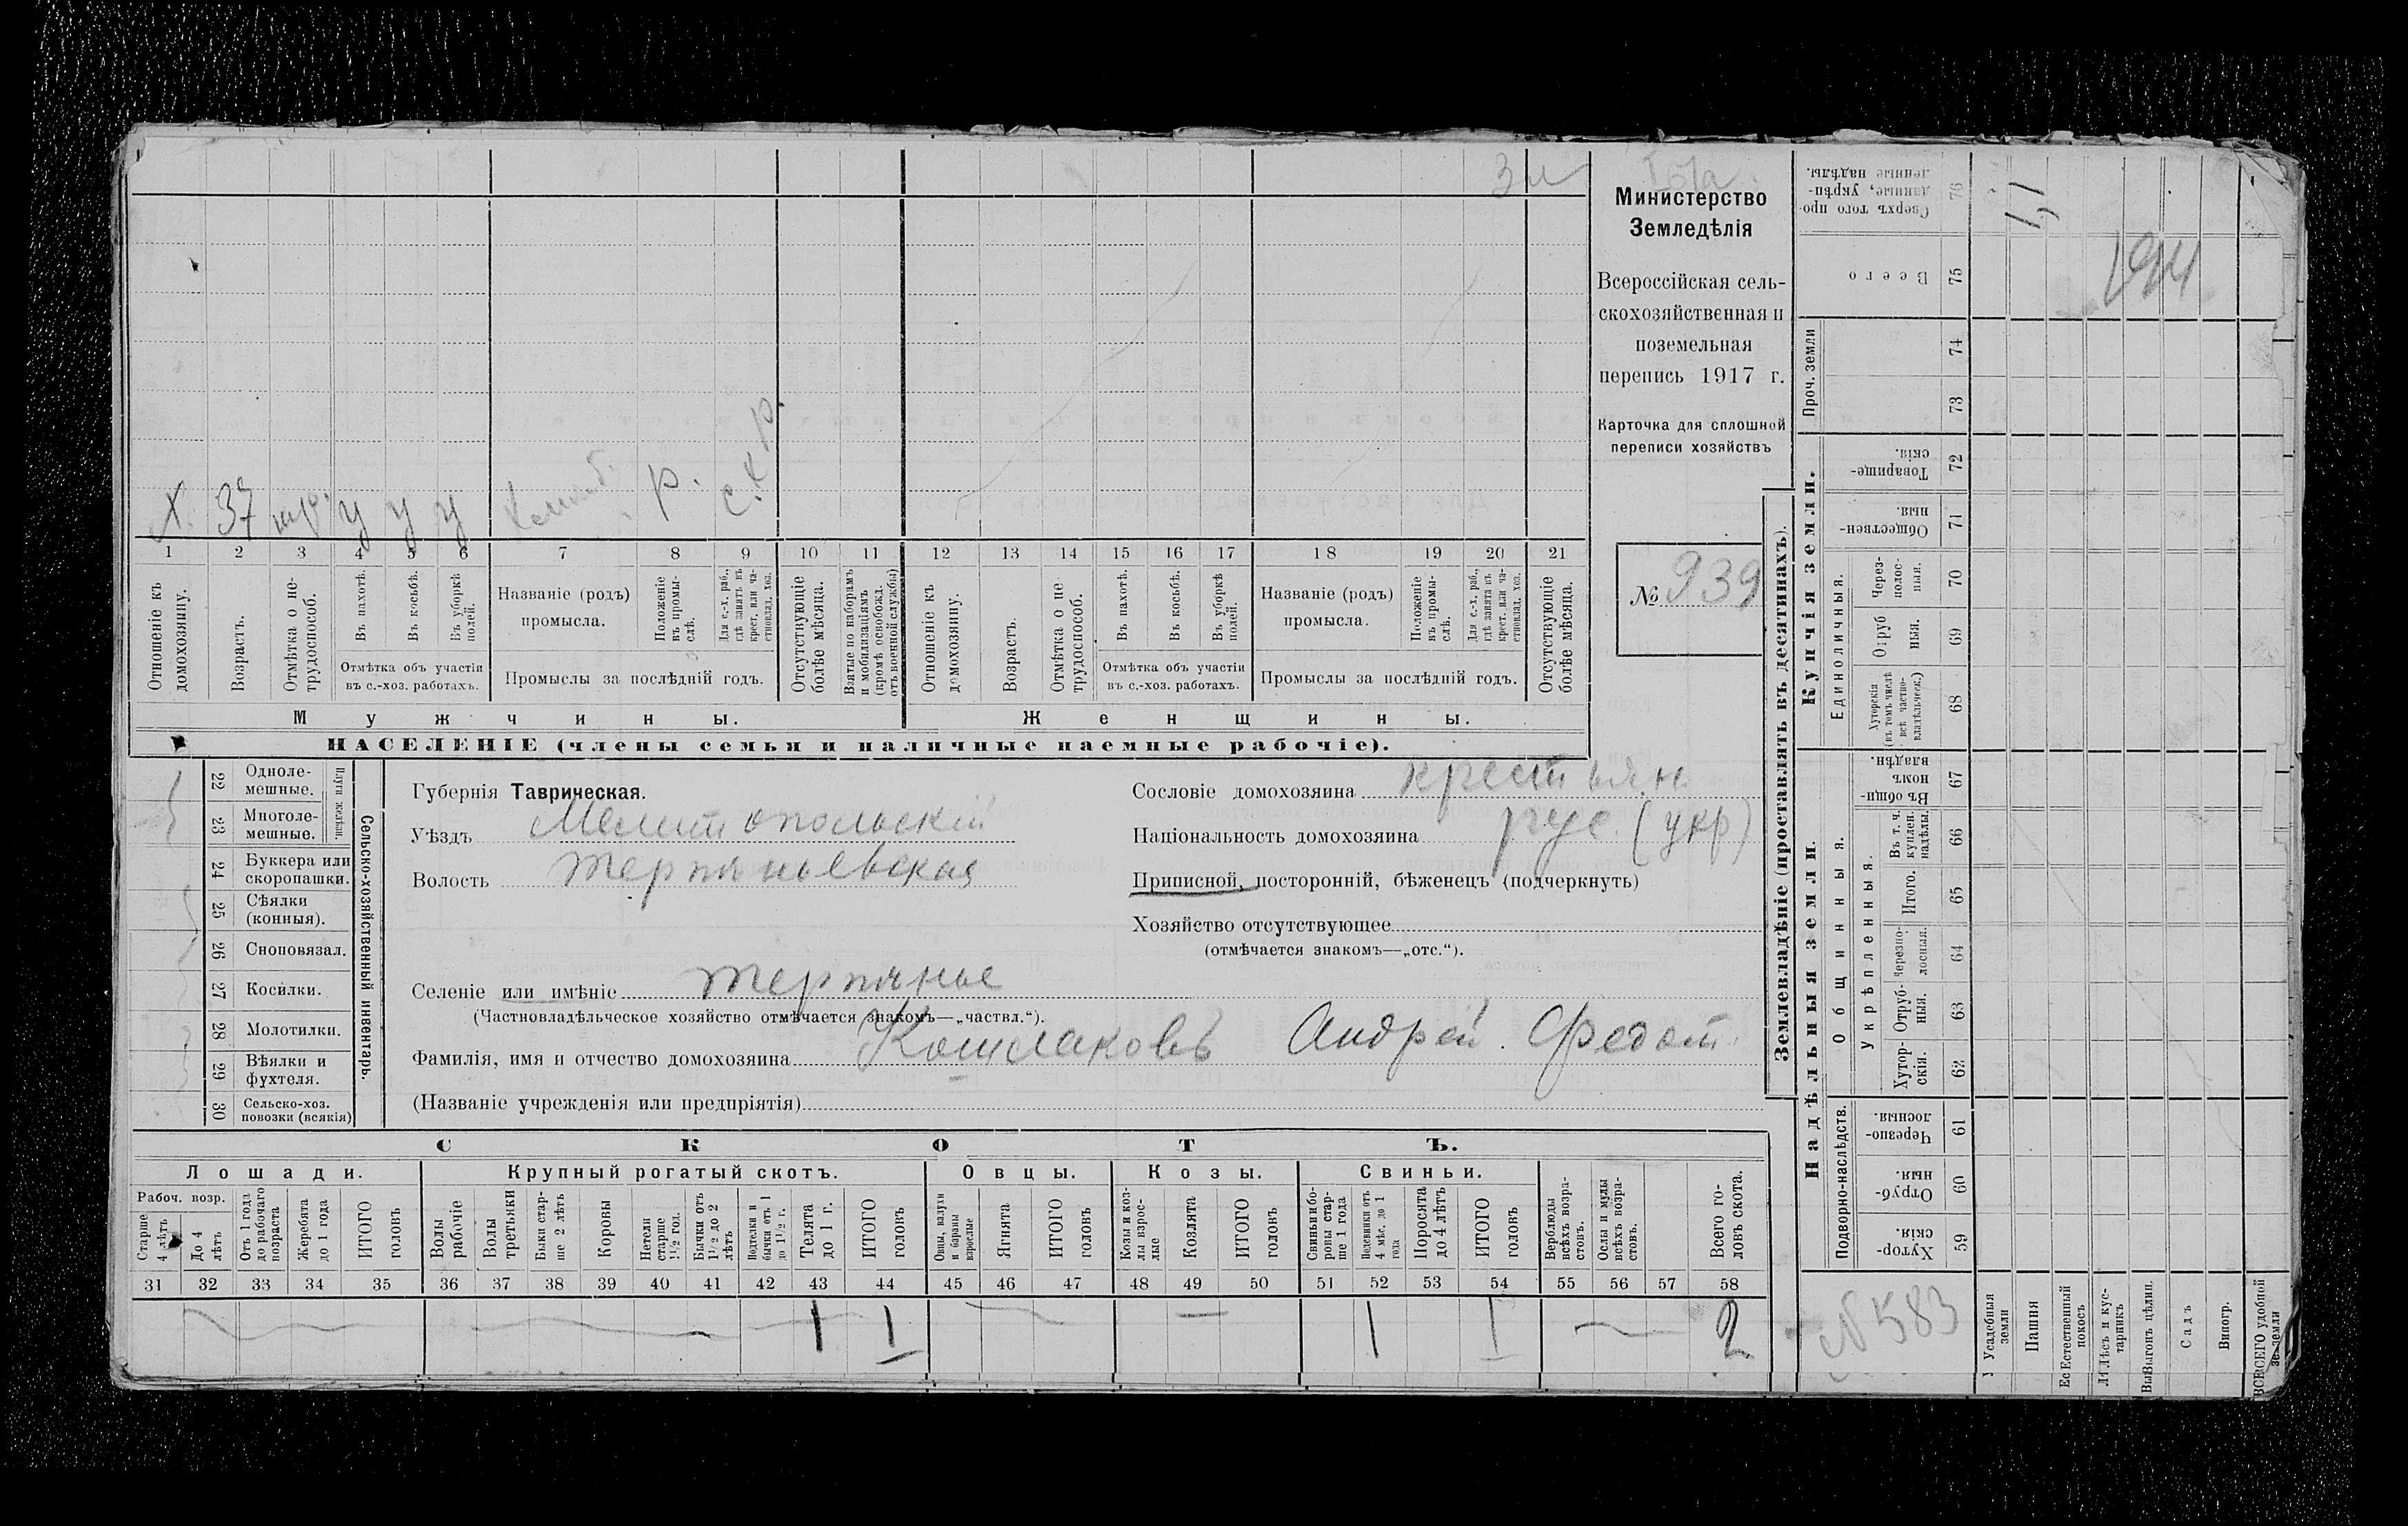 Министерство
Земледѣлія
Всероссійская сель-
скохозяйственная и
поземельная
перепись 1917 г.
Карточка для сплошной
переписи хозяйствъ
№ 939
Х. 37 у у у р. с.х р.
1 2 3 4 5 6 7 8 9 10 11 12 13 14 15 16 17 18 19 20 21
Отношеніе къ домохозяину.
Возрастъ.
Отмѣтка о не-трудоспособ.
Въ пахотѣ.
Въ косьбѣ.
Въ уборкѣ полей.
Отмѣтка объ участіи
въ с.-хоз. работахъ.
Названіе (родъ)
промысла.
Положеніе въ промы-слѣ.
Для с.-х. раб., гдѣ занятъ въ крест. или ча-стновлад. хоз.
Промыслы за послѣдній годъ.
Отсутствующіе болѣе мѣсяца.
Взятые по наборамъ и мобилизаціямъ (кромѣ освобожд. отъ военной службы)
Отношеніе къ домохозяину.
Возрастъ.
Отмѣтка о не трудоспособ.
Въ пахотѣ.
Въ косьбѣ.
Въ уборкѣ полей.
Отмѣтка объ участіи
въ с.-хоз. работахъ.
Названіе (родъ)
промысла.
Положеніе въ промы-слѣ.
Для с.-х. раб., гдѣ занята въ крест. или ча-стновлад. хоз.
Промыслы за послѣдній годъ.
Отсутствующіе болѣе мѣсяца.
Мужчины.
Женщины.
НАСЕЛЕНІЕ (члены семьи и наличные наемные рабочіе).
22 Одноле-мешные.
23 Многоле-мешные.
Плуги желѣзн.
24 Буккера или скоропашки.
25 Сѣялки (конныя).
26 Сноповязал.
27 Косилки.
28 Молотилки.
29 Вѣялки и фухтеля.
30 Сельско-хоз. повозки (всякія)
Сельско-хозяйственный инвентарь.
Губернія Таврическая.
Уѣздъ Мелитопольскій
Волость Терпѣньевская
Сословіе домохозяина крестьян
Національность домохозяина рус. (укр)
Приписной, посторонній, бѣженецъ (подчеркнуть)
Хозяйство отсутствующее
(отмѣчается знакомъ—„отс.“).
Селеніе или имѣніе Терпѣнье
(Частновладѣльческое хозяйство отмѣчается знакомъ—„частвл.“).
Фамилія, имя и отчество домохозяина Кошлаковъ Андрей. Федот.
(Названіе учрежденія или предпріятія)
СКОТЪ.
Лошади. Крупный рогатый скотъ. Овцы. Козы. Свиньи.
Рабоч. возр.
Старше 4 лѣтъ
До 4 лѣтъ
Отъ 1 года до рабочаго возраста
Жеребята до 1 года
ИТОГО головъ
Волы рабочіе
Волы третьяки
Быки стар-ше 2 лѣтъ
Коровы
Нетели старше 1½ год.
Бычки отъ 1½ до 2 лѣтъ
Подтелки и бычки отъ 1 до 1½ г.
Телята до 1 г.
ИТОГО головъ
Овцы, валухи и бараны взрослые
Ягнята
ИТОГО головъ
Козы и коз-лы взрос-лые
Козлята
ИТОГО головъ
Свиньи и бо-ровы стар-ше 1 года
Подсвинки отъ 4 мѣс. до 1 года
Поросята до 4 лѣтъ
ИТОГО головъ
Верблюды всѣхъ возра-стовъ.
Ослы и мулы всѣхъ возра-стовъ.
Всего го-ловъ скота.
31 32 33 34 35 36 37 38 39 40 41 42 43 44 45 46 47 48 49 50 51 52 53 54 55 56 57 58
1 1 1 1 2
Землевладѣніе (проставлять въ десятинахъ).
Сверхъ того про-данные, укрѣп-ленные надѣлы. 76
Всего 75
Проч. земли 74 73
Купчія земли.
Товарище-скія. 72
Обществен-ныя. 71
Единоличныя.
Через-полос-ныя. 70
Отруб ныя. 69
Хуторскія (въ томъ числѣ всѣ частно-владѣльческ.) 68
Надѣльныя земли.
Общинныя.
Въ общи-номъ владѣн. 67
Укрѣпленныя.
Въ т. ч. куплен. надѣлы. 66
Итого. 65
Черезпо-лосныя. 64
Отруб-ныя. 63
Хутор-скія. 62
Подворно-наслѣдств.
Черезпо-лосныя. 61
Отруб-ныя. 60
Хутор-скія. 59
№ 583
194
Усадебныя земли
Пашня
Естественный покосъ
Лѣсъ и кус-тарникъ
Выгонъ цѣлин.
Садъ
Виногр.
ВСЕГО удобной земли